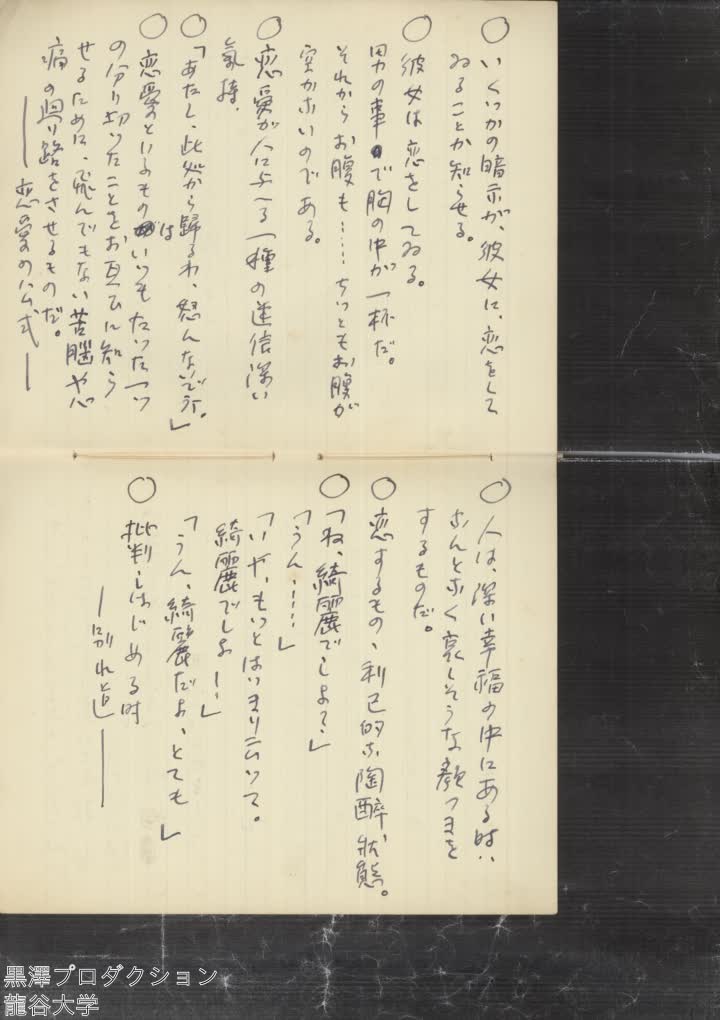 ○いくつかの暗示が、彼女に、恋をして
ゐることか知らせる。
○彼女は恋をしてゐる。
男の事で胸の中が一杯だ。
それからお腹も……ちっともお腹が
空かないのである。
○恋愛が人に与へる一種の迷信深い
氣持.
○「あたし、此処から歸るわ、怒んないでネ。」
○恋愛といふものはいつもたった一つ
の分り切ったことをお互ひに知ら
せるために、飛んでもない苦腦や心
痛の廻り路をさせるものだ。
――恋愛の公式――
○人は、深い幸福の中にある時は
なんとなく哀しそうな顔つきを
するものだ。
○恋するもの、利己的な陶醉狀態。
○「ね、綺麗でしよ?」
「うん、……」
「いや、もつとはつきり云つて。
綺麗でしよ――」
「うん、綺麗だよ、とても」
○批判しはじめる時
――別れ道――
黒澤プロダクション
龍谷大学